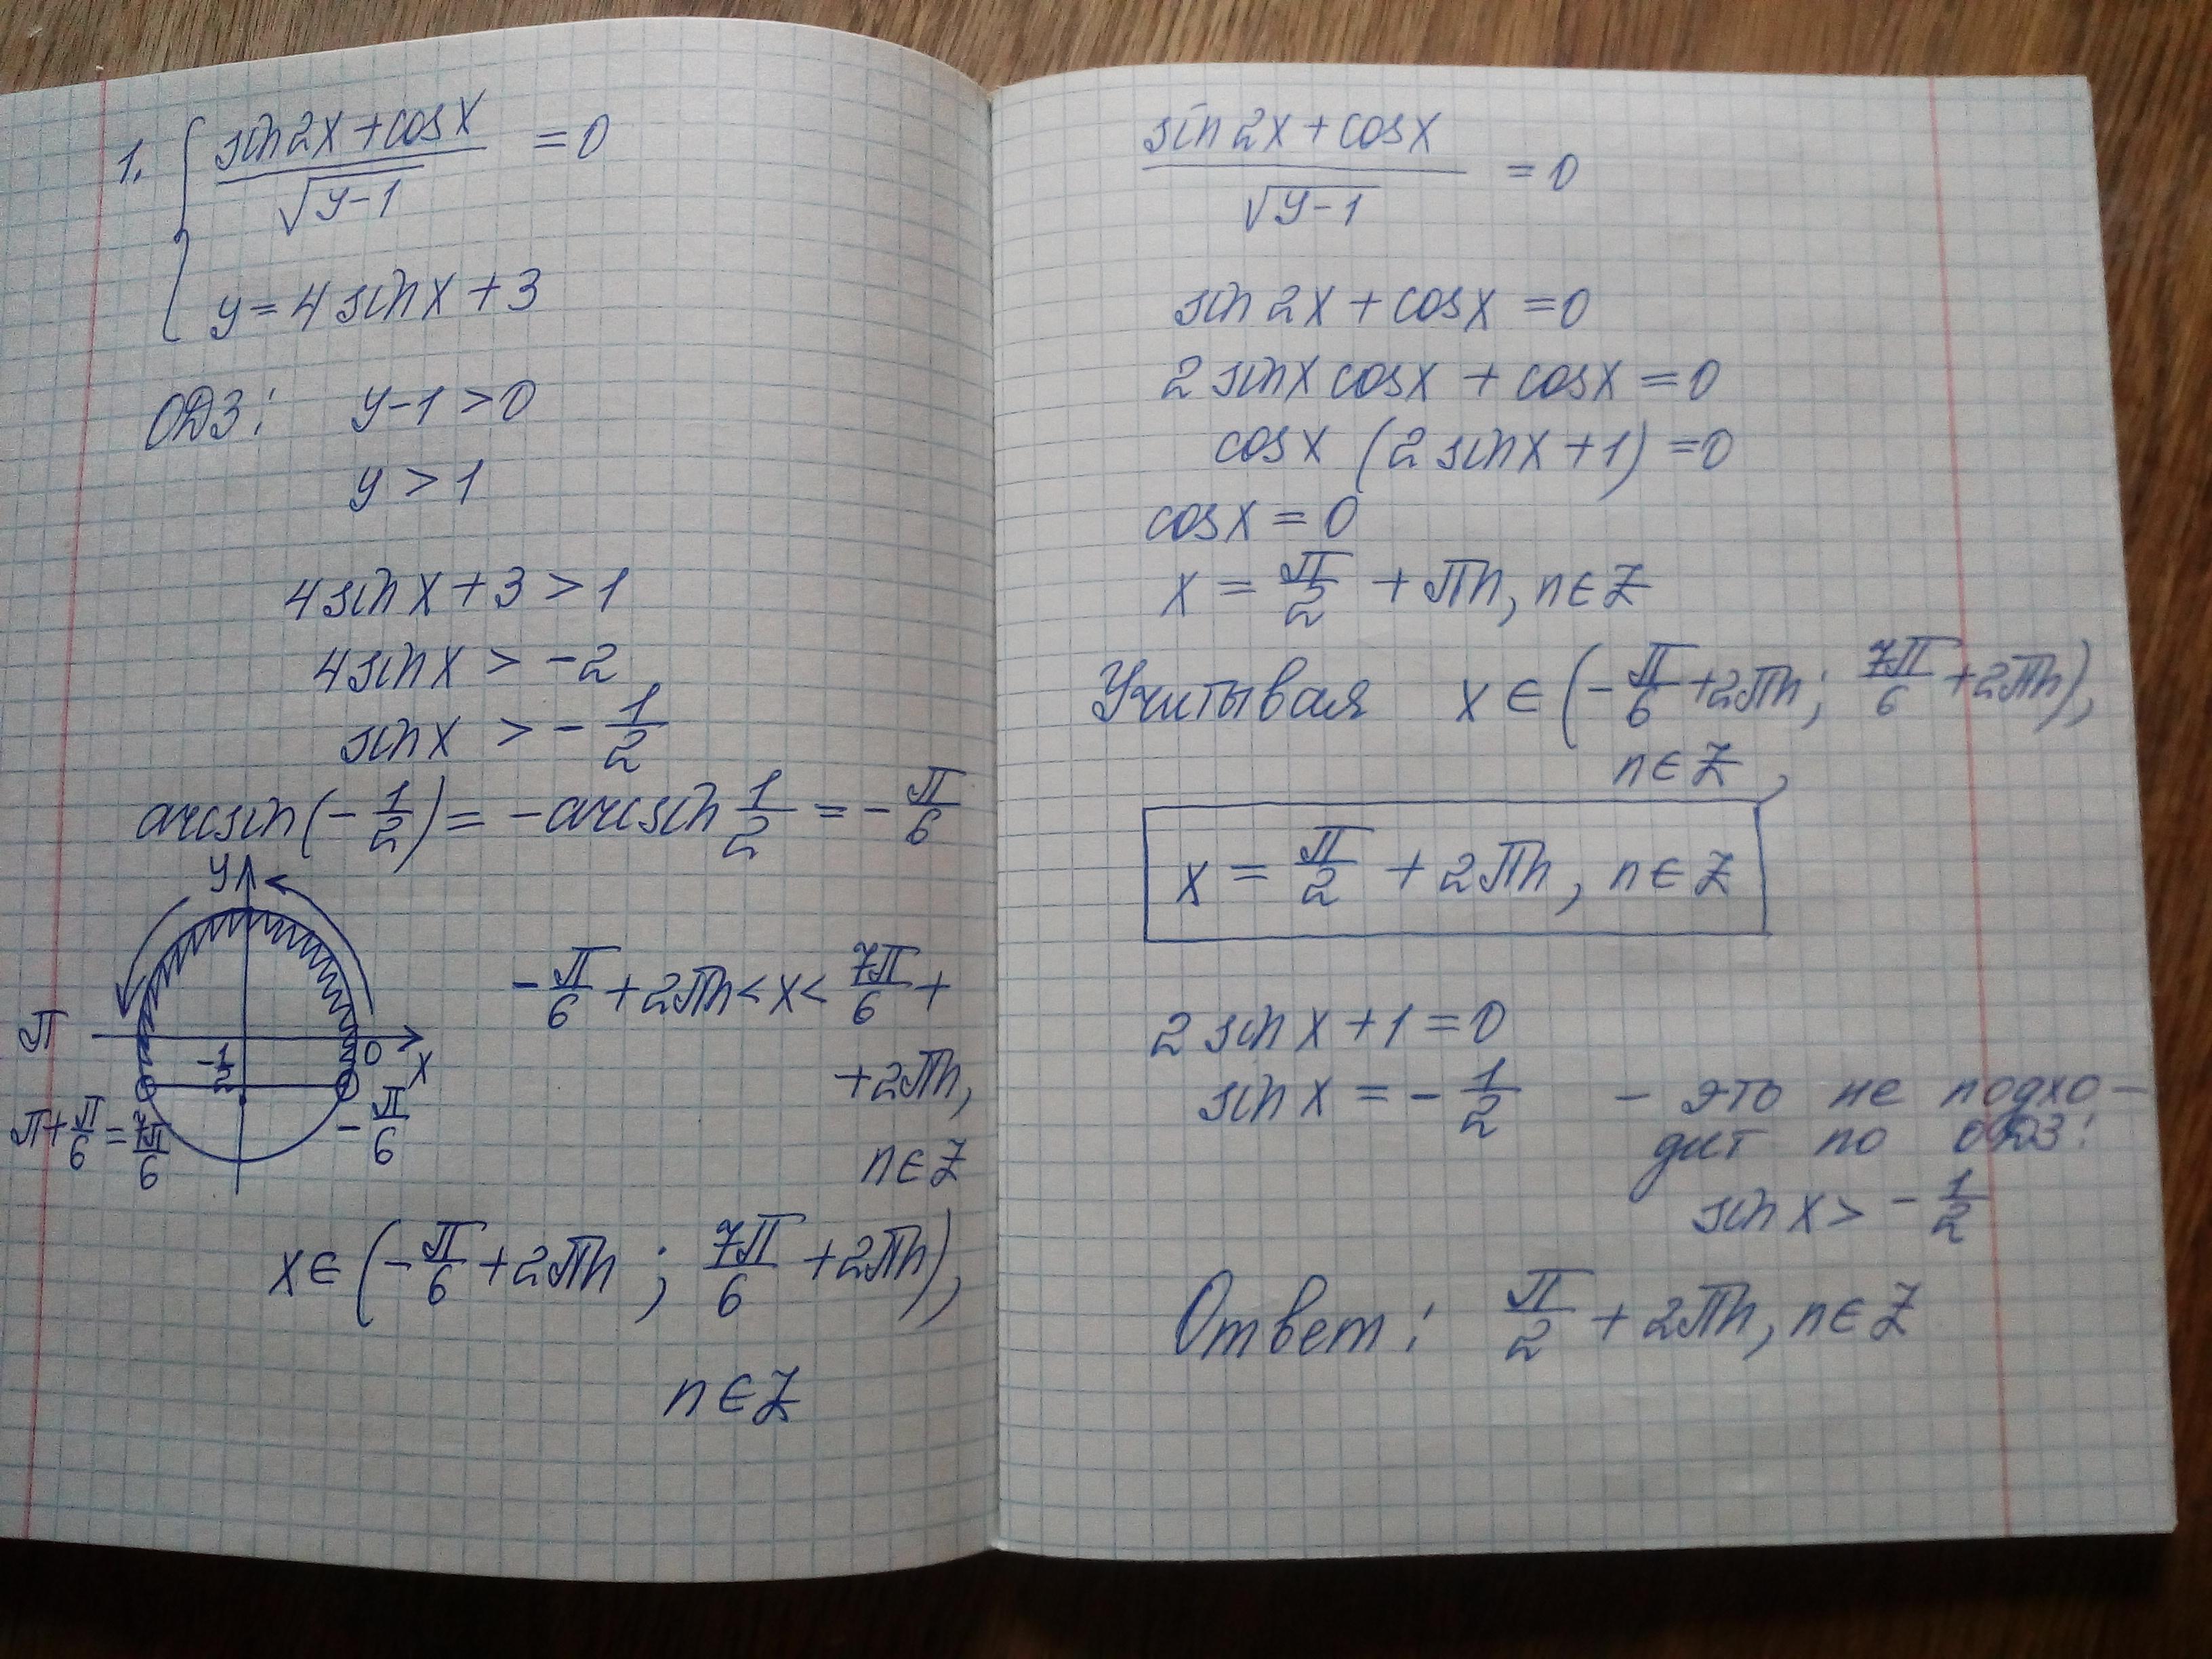 1. { (sin2x+cosx)/√(y-1) = 0
y = 4 sinx + 3
ОДЗ: y-1 > 0
y > 1
4 sinx + 3 > 1
4 sinx > -2
sinx > -1/2
arcsin(-1/2) = -arcsin 1/2 = -π/6
y
π
-1/2
0
x
π+π/6 = 7π/6
-π/6
-π/6 + 2πn < x < 7π/6 +
+2πn,
n∈Z
x∈(-π/6 + 2πn ; 7π/6 + 2πn),
n∈Z
(sin2x + cosx)/√(y-1) = 0
sin2x + cosx = 0
2 sinx cosx + cosx = 0
cosx (2 sinx + 1) = 0
cosx = 0
x = π/2 + πn, n∈Z
Учитывая x∈(-π/6 + 2πn; 7π/6 + 2πn),
n∈Z,
x = π/2 + 2πn, n∈Z
2 sinx + 1 = 0
sinx = -1/2 - это не подхо-
дит по ОДЗ:
sinx > -1/2
Ответ: π/2 + 2πn, n∈Z